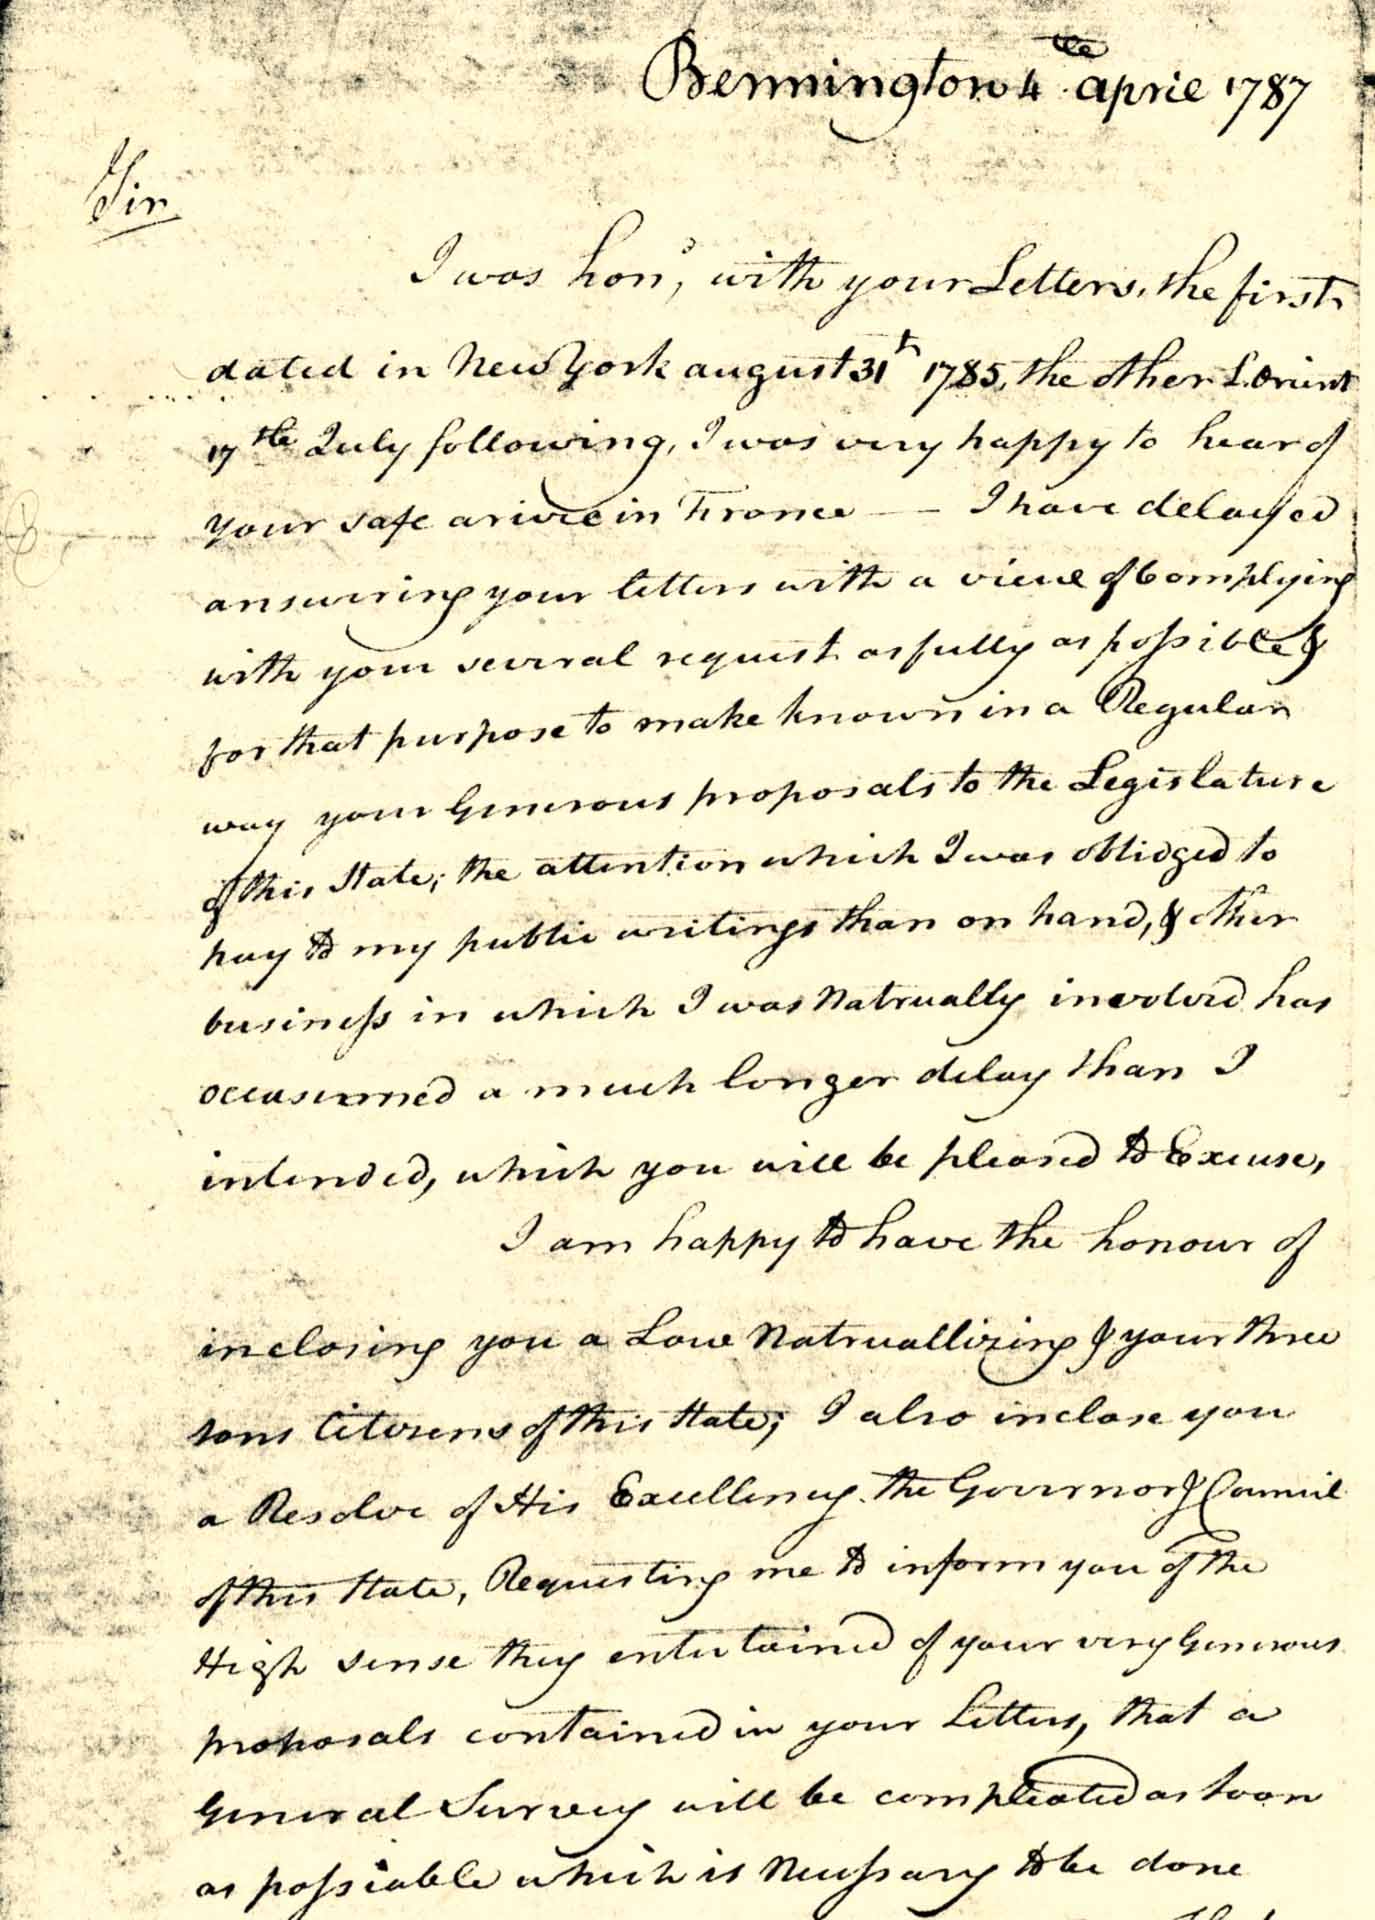 Bennington 4th aprie 1787
Sir
I was hond, with your Letters, the first
dated in New York august 31th 1785, the other L.Orient
17the July following, I was very happy to hear of
your safe arive in France — I have delayed
answering your letters with a view of Complying
with your several request as fully as possible &
for that purpose to make known in a Regular
way your Generous proposals to the Legislature
of this State; the attention which I was oblidged to
pay to my public writings than on hand, & other
business in which I was Natrually involved has
occasinned a much longer delay than I
intended, which you will be pleased to Excuse,
I am happy to have the honour of
inclosing you a Law Natruallizing & your three
sons Citizens of this State; I also inclose you
a Resolve of His Excellency the Governor & Council
of this State, Requesting me to inform you of the
High sense they entertained of your very Generous
proposals contained in your Letters, that a
General Survey will be compleated as soon
as possiable which is Necessary to be done